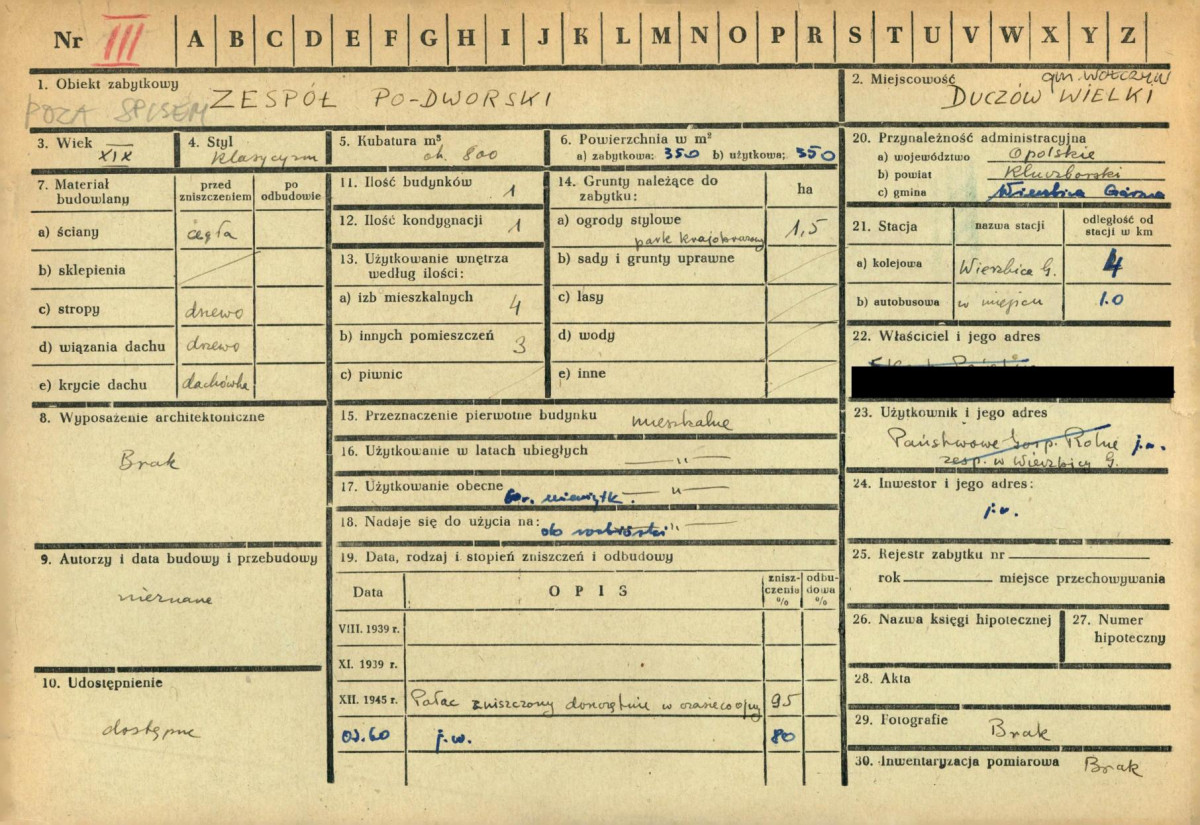 Nr III A B C D E F G H I J K L M N O P R S T U V W X Y Z
1. Obiekt zabytkowy
POZA SPISEM
ZESPÓŁ PO-DWORSKI
2. Miejscowość gm. WOŁCZYN
DUCZÓW WIELKI
3. Wiek
XIX
4. Styl
klasycyzm
5. Kubatura m³
ok. 800
6. Powierzchnia w m²
a) zabytkowa: 350 b) użytkowa: 350
7. Materiał budowlany
przed zniszczeniem
po odbudowie
a) ściany cegła
b) sklepienia
c) stropy drzewo
d) wiązania dachu drzewo
e) krycie dachu dachówka
8. Wyposażenie architektoniczne
Brak
9. Autorzy i data budowy i przebudowy
nieznane
10. Udostępnienie
dostępne
11. Ilość budynków 1
12. Ilość kondygnacji 1
13. Użytkowanie wnętrza
według ilości:
a) izb mieszkalnych 4
b) innych pomieszczeń 3
c) piwnic
14. Grunty należące do
zabytku: ha
a) ogrody stylowe
park krajobrazowy 1,5
b) sady i grunty uprawne
c) lasy
d) wody
e) inne
15. Przeznaczenie pierwotne budynku mieszkalne
16. Użytkowanie w latach ubiegłych — „ —
17. Użytkowanie obecne — „ —
60r.
18. Nadaje się do użycia na: — „ —
do rozbiórki
19. Data, rodzaj i stopień zniszczeń i odbudowy
Data OPIS zniszczenia % odbudowa %
VIII. 1939 r.
XI. 1939 r.
XII. 1945 r. Pałac zniszczony doszczętnie w czasie 95
j.w. 80
20. Przynależność administracyjna
a) województwo Opolskie
b) powiat Kluczborski
c) gmina Wierzbica Górna
21. Stacja
nazwa stacji
odległość od stacji w km
a) kolejowa Wierzbica G. 4
b) autobusowa w miejscu 1.0
22. Właściciel i jego adres
23. Użytkownik i jego adres
Państwowe Gosp. Rolne j.w.
zesp. w Wierzbicy G.
24. Inwestor i jego adres:
j.w.
25. Rejestr zabytku nr
rok miejsce przechowywania
26. Nazwa księgi hipotecznej
27. Numer
hipoteczny
28. Akta
29. Fotografie Brak
30. Inwentaryzacja pomiarowa Brak